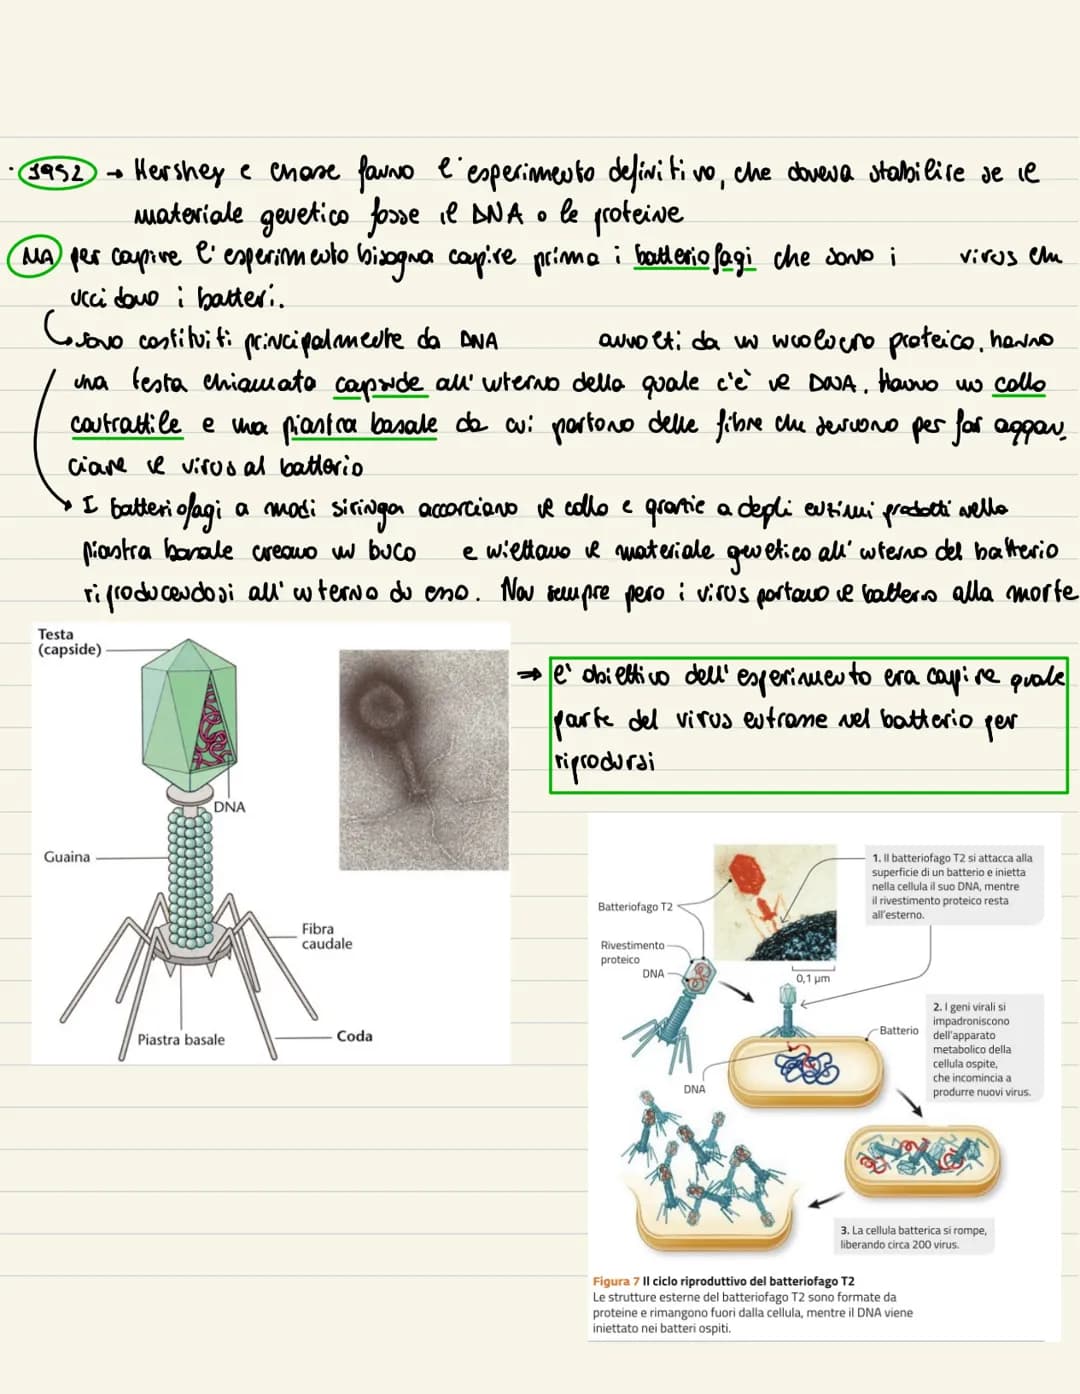 · 1952 → Hershey e Chase fanno l'esperimento definitivo, che doveva stabilire se il
materiale genetico fosse il DNA o le proteine
MA per capire l'esperimento bisogna capire prima i batteriofagi che sono i virus che
uccidono i batteri.
sono costituiti principalmente da DNA avvolti da un involucro proteico. hanno
una testa chiamata capside all'interno della quale c'è il DNA. Hanno un collo
contrattile e una piastra basale da cui partono delle fibre che servono per far aggan
ciare il virus al batterio
I batteriofagi a modi siringa accorciano il collo e grazie a degli enzimi prodotti nella
piastra basale creano un buco e iniettano il materiale genetico all'interno del batterio
riproducendosi all'interno di esso. Non sempre però i virus portano il batterio alla morte
Testa
(capside)
DNA
Guaina
Fibra
caudale
Piastra basale
Coda
→ l'obiettivo dell'esperimento era capire quale
parte del virus entrasse nel batterio per
riprodursi
1. Il batteriofago T2 si attacca alla
superficie di un batterio e inietta
nella cellula il suo DNA, mentre
il rivestimento proteico resta
all'esterno.
Batteriofago T2
Rivestimento
proteico
DNA
0,1 µm
2. I geni virali si
impadroniscono
dell'apparato
metabolico della
cellula ospite,
che incomincia a
produrre nuovi virus.
Batterio
DNA
3. La cellula batterica si rompe,
liberando circa 200 virus.
Figura 7 Il ciclo riproduttivo del batteriofago T2
Le strutture esterne del batteriofago T2 sono formate da
proteine e rimangono fuori dalla cellula, mentre il DNA viene
iniettato nei batteri ospiti.